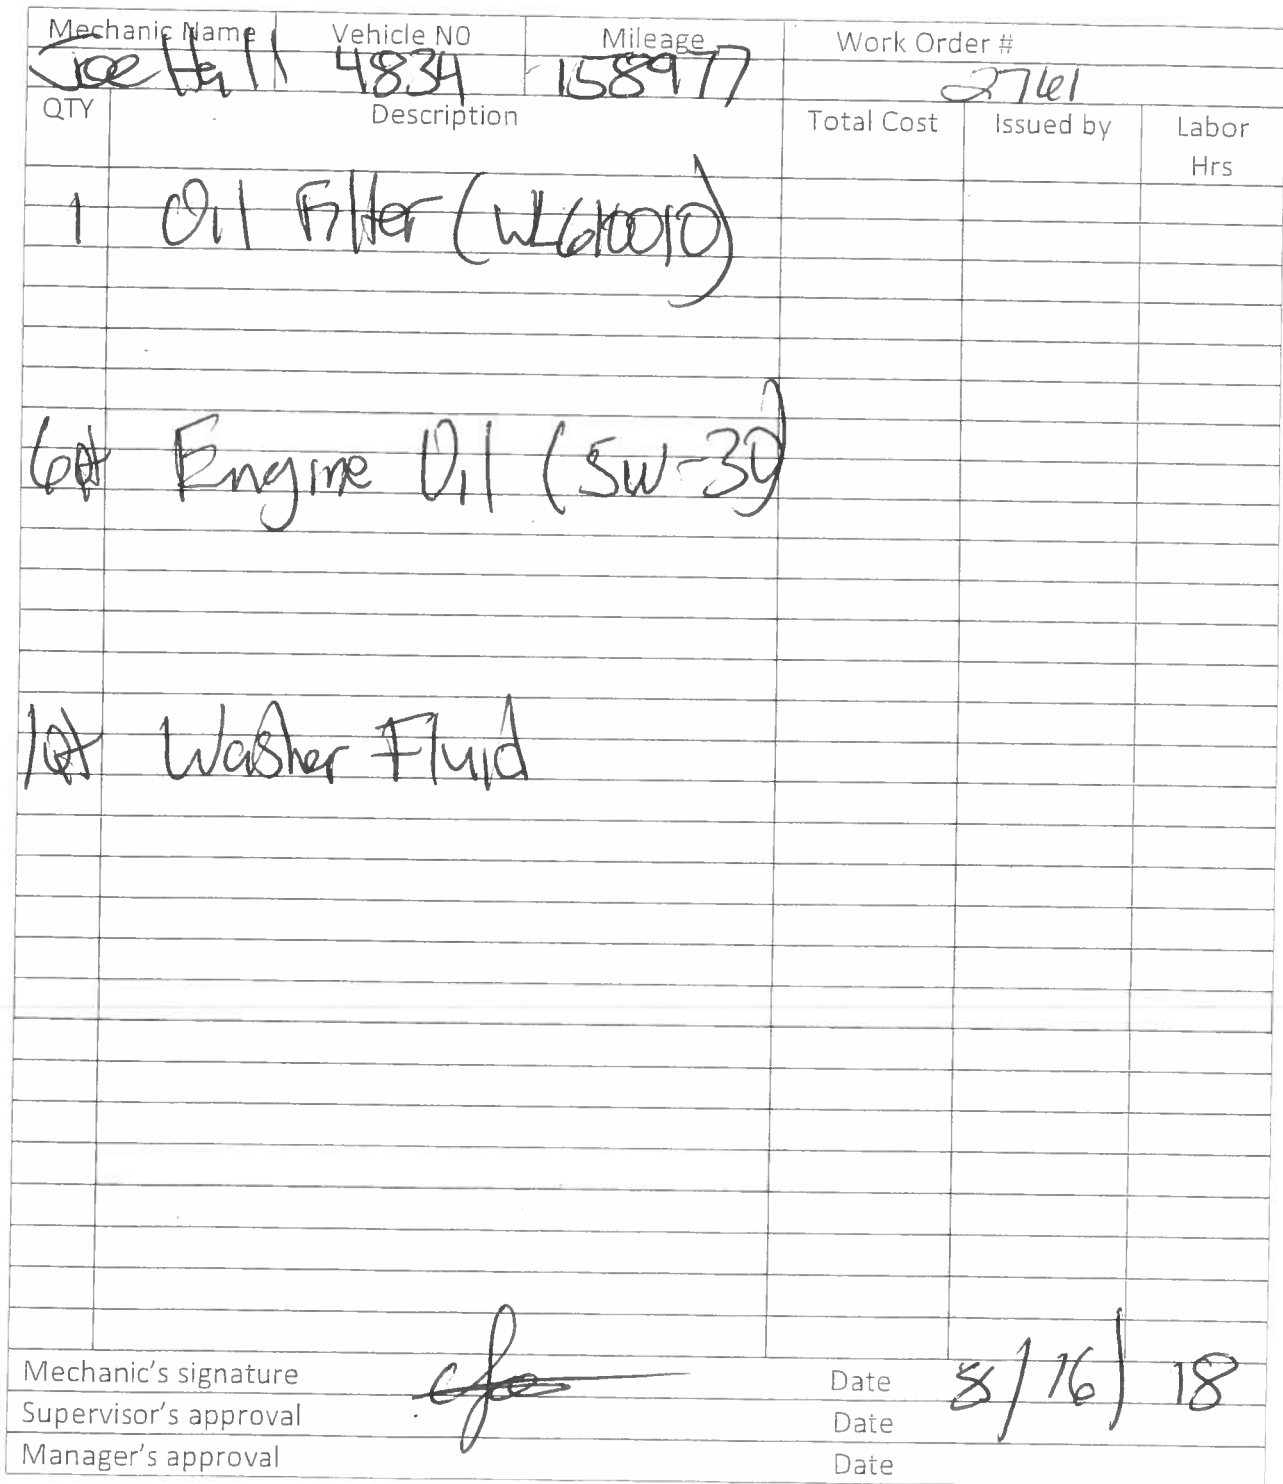 Mechanic Name Vehicle NO Mileage Work Order #
Joe Hall 4834 158977 2761
QTY Description Total Cost Issued by Labor Hrs
1 Oil Filter (WL610010)
6Qt Engine Oil (5W-30)
1Qt Washer Fluid
Mechanic's signature Date 8/16/18
Supervisor's approval Date
Manager's approval Date